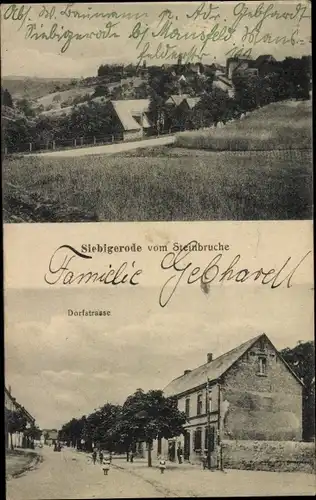 Abs. W. Baumann p. Adr. Gebhardt
Siebigerode bei Mansfeld Mans-
felder
Siebigerode vom Steinbruche
Familie Gebhardt
Dorfstrasse